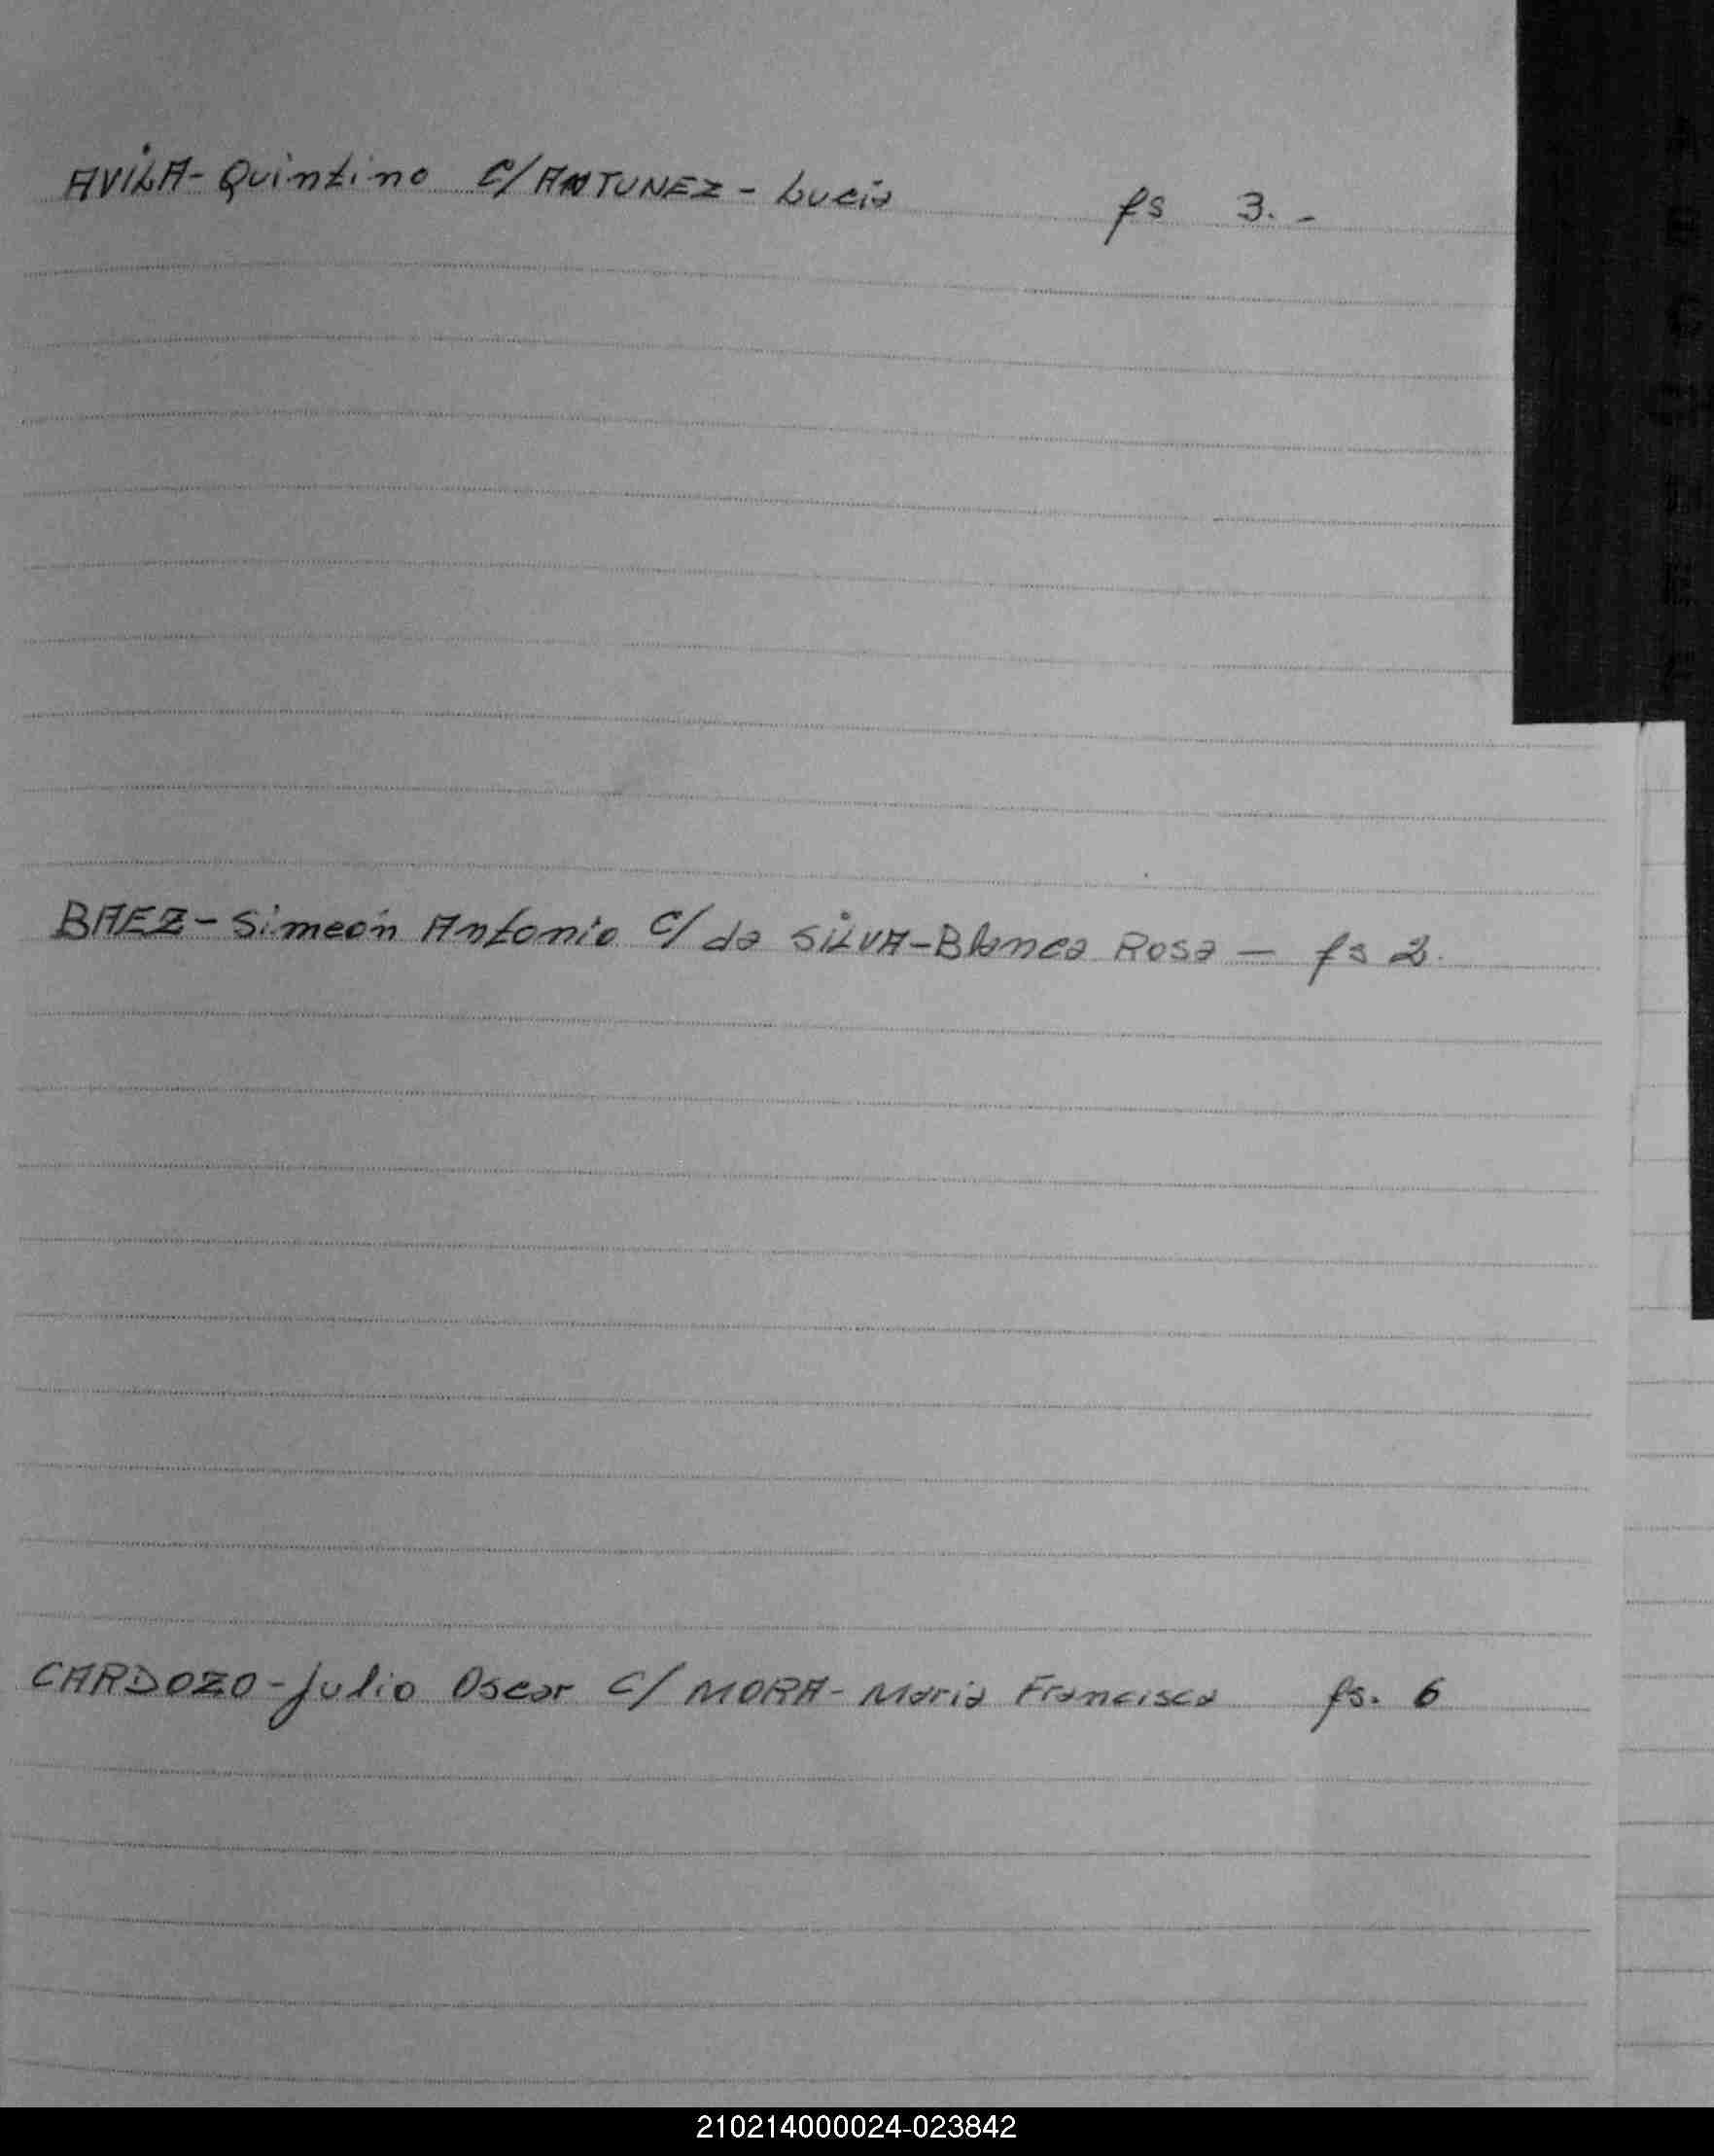 AVILA- Quintino C/ ANTUNEZ - Lucia fs 3. -
BAEZ- Simeón Antonio C/ da SILVA-Blanca Rosa — fs 2.
CARDOZO-Julio Oscar C/ MORA- Maria Francisca fs. 6
210214000024-023842